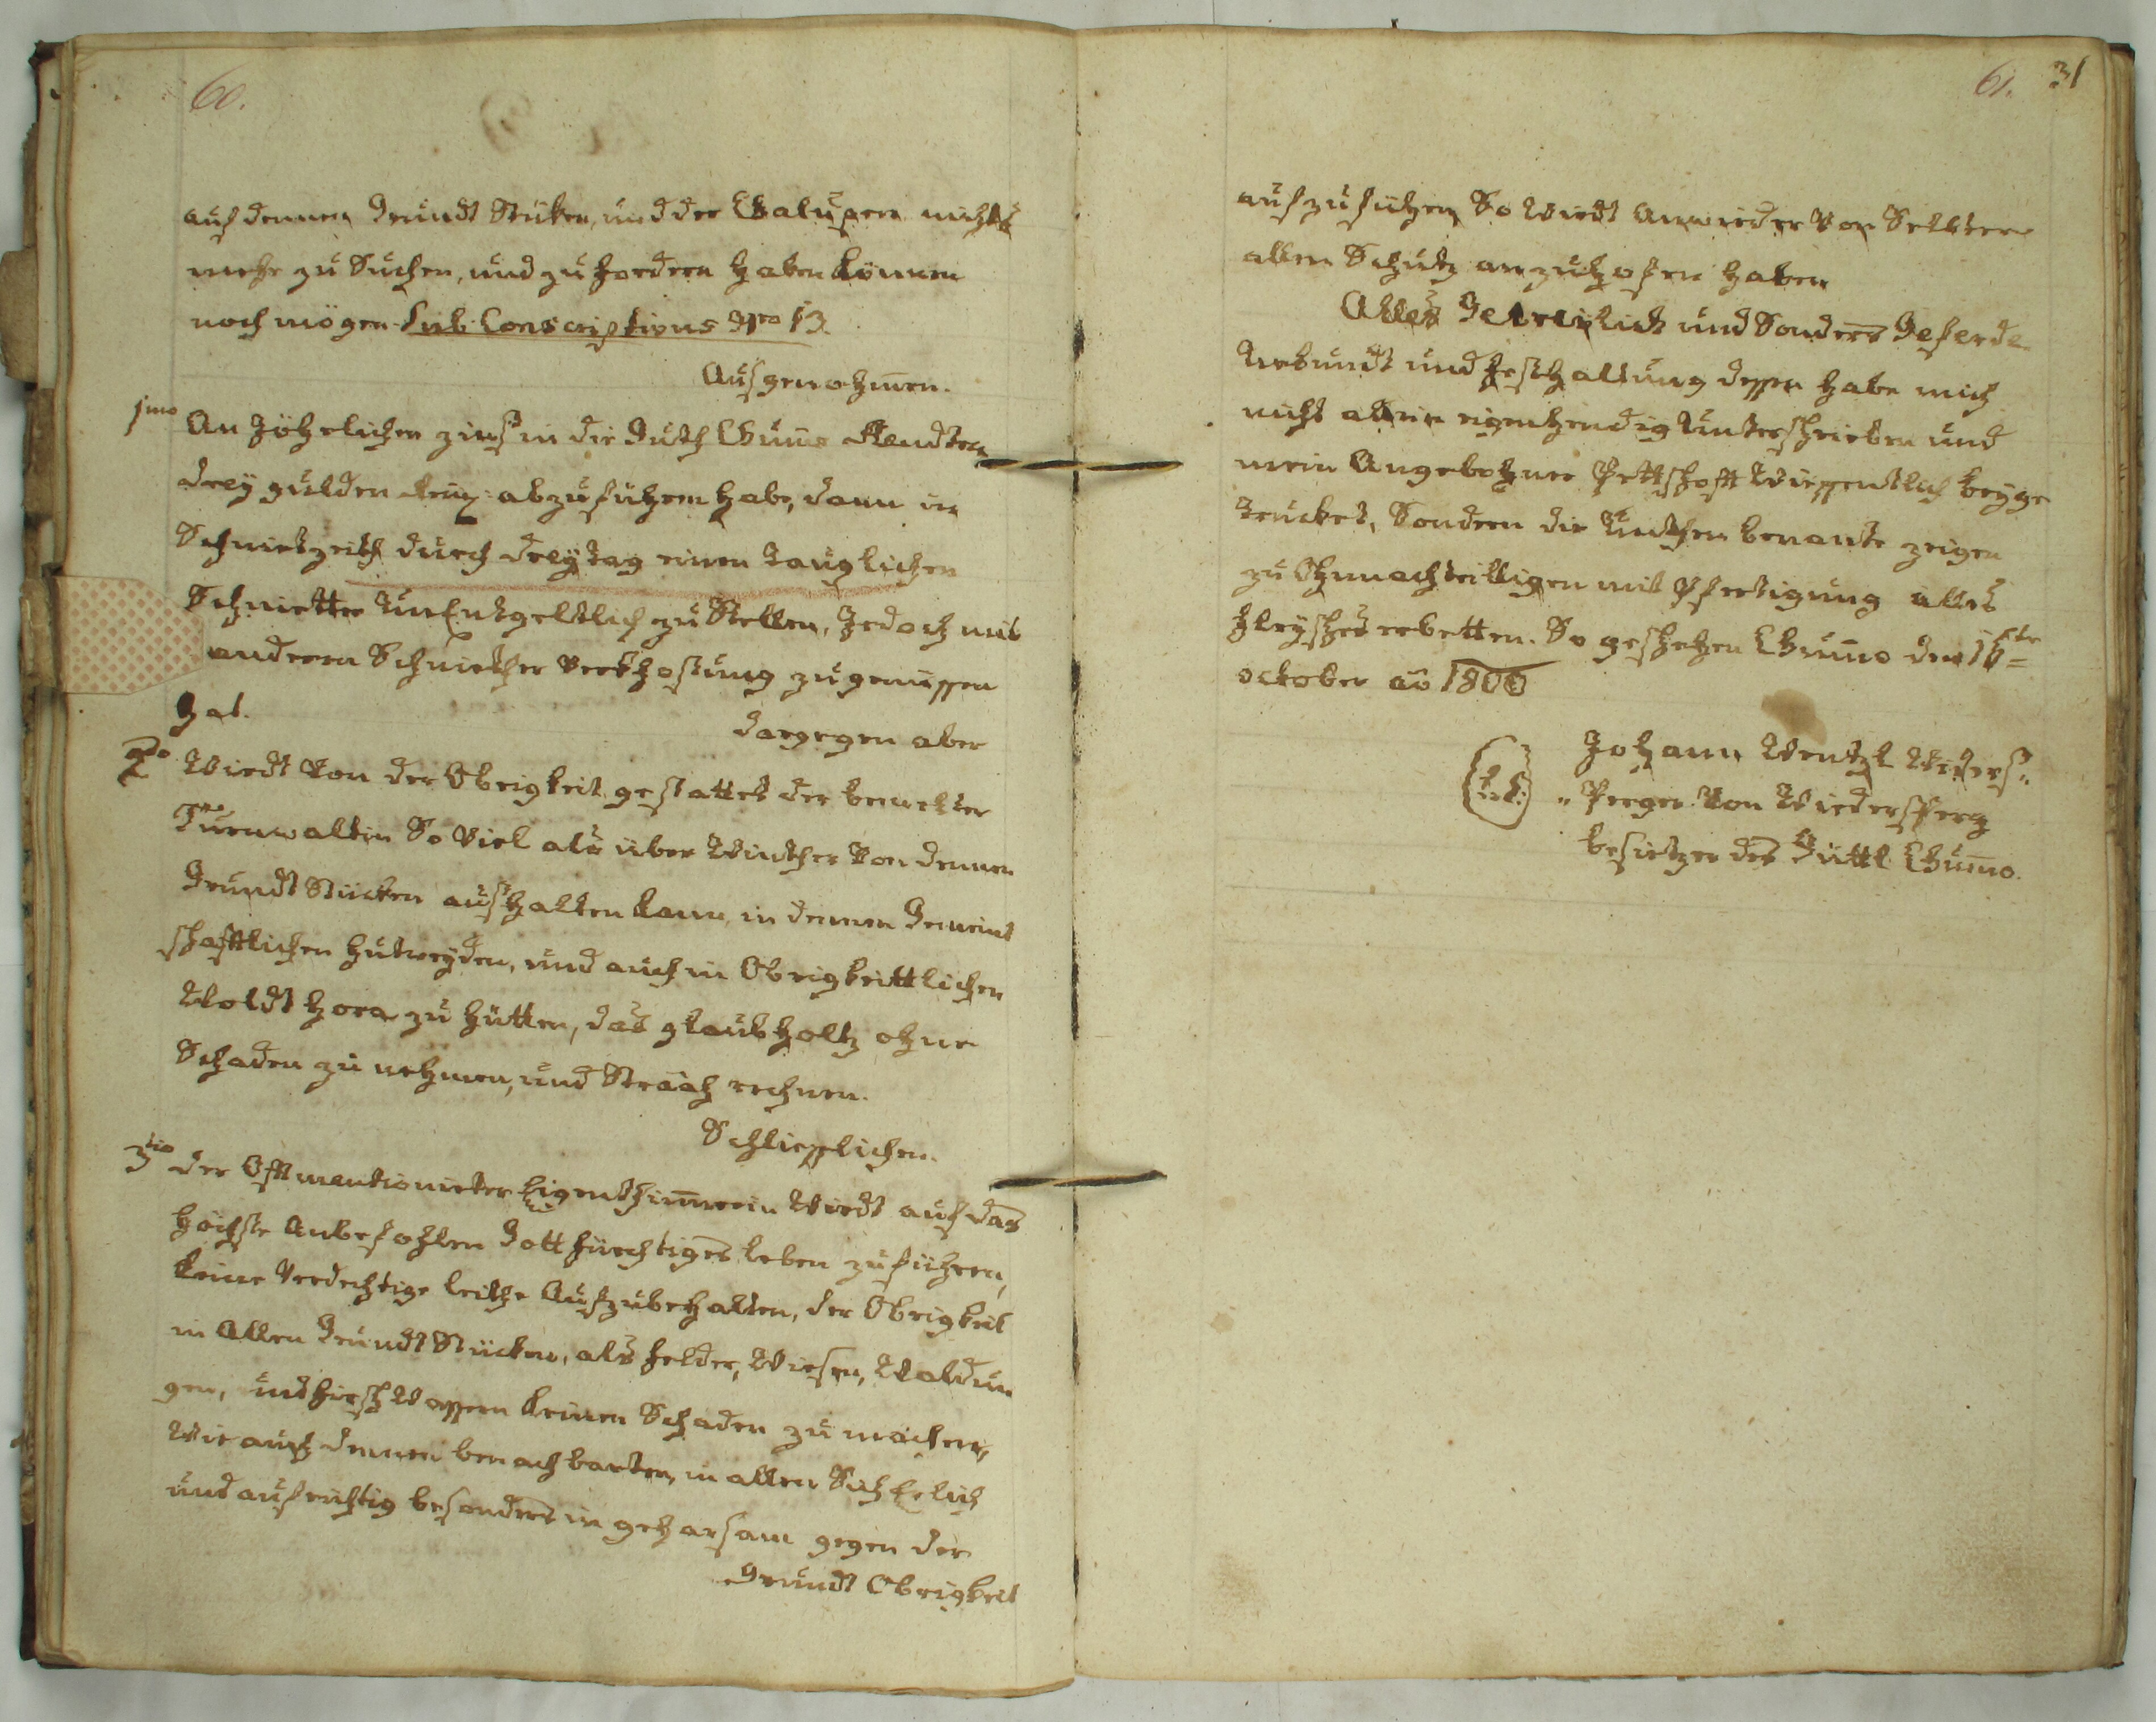 60.
auf dennen Grundt Stüken, und der Chalupen nichts
mehr zu Suchen, und zu fordern haben können
noch mögen Sub Conscriptions Nro 13.
Ausgenohmen.
1mo An Jöhrlichen zinß in die Guth Chumo Rendten
drey gulden abzuführen habe, dann in
Schnietzeith durch drey tag einen tauglichen
Schnietter UnEntgeldtlich zu Stellen, Jedoch mit
anderen Schniether Verkhostung zu genüssen
hat.
dargegen aber
2do Wirdt Von der Obrigkeit gestattet der bemelter
So Viel als über Winther Von dennen
Grundt Stücken aushalten kann, in dennen Gemeint
schafftlichen hutweyden, und auch in Obrigkeittlichen
Woldt hora zu hütten, das glaubholtz ohne
Schaden zu nehmen, und Straäh rechnen.
Schliesslichen.
3tio der Offt mentionirter Eigenthümerin Wirdt auf das
höchste Anbefohlen Gottfürchtiges leben zuführen,
keine Verdechtige leithe Aufzubehalten, der Obrigkeit
in Allen Grundt Stücken, als felder, Wiesen, Waldun
gen, und fischWassern keinen Schaden zu machen,
Wie auch dennen benachbarten, in allen Sich Erlich
und aufrichtig besonders in gehorsam gegen der
Grundt Obrigkeit
61. 31
aufzuführen So Wirdt Anwieder Von Selbter
allen Schutz anzuhofen haben
Alles Getreülich und Sonders Geferde
Urkundt und festhaltung dessen habe mich
nicht allein eigenhendig Unterschrieben und
mein Angebohrner Pettschafft Wiessentlich beyge
drucket, Sondern die Unthen benante zeigen
zu Ohnnachteilligen mit Pfertigung alles
fleysses erbetten. So geschehen Chumo den 16te
october ao 1800
L.S.
Johann Wentzl Widers"
" Perger Von Wiedersperg
besietzer des Güttl Chumo.